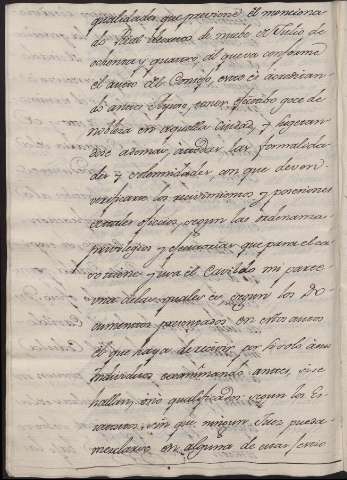 qualidades que previene el menciona-
do Real decreto de nueve de Julio de
ochenta y quatro, al que va conforme
el auto del Consejo, esto es acreditan-
do antes el que tuviere, goce de
nobleza en aquella Ciudad, y sugetan
dose ademas, a todas las formalida-
des y solemnidades, con que deven
verificarse los recivimientos y posesiones
de tales oficios, segun las ordenanzas
privilegios y executorias que para el ca-
so tiene y usa el Cavildo mi parte
una de las quales es, segun los Do
cumentos presentados en estos autos
el que haya de recivir por si solo à sus
Individuos, examinando antes, si se
hallan, ó no qualificados segun los Es
tatutos, sin que ningun Juez pueda
mezclarse en alguna de estas